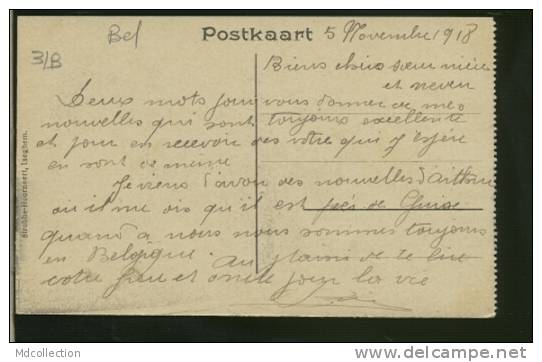 Bel
3/B
Postkaart 5 Novembre 1918
Biens chers sœur nièce
et neveu
Deux mots pour vous donner de mes
nouvelles qui sont toujours excellente
et pour en recevoir des votre qui j'espère
en sont de meme
Je viens d'avoir des nouvelles d'Arthur
ou il me dis qu'il est près de Guise
quand a nous nous sommes toujours
en Belgique. Au plaisir de te lire
votre frere et oncle pour la vie
Strobbe-Hoornaert, Iseghem.
Mdcollection
http://www.delcampe.net